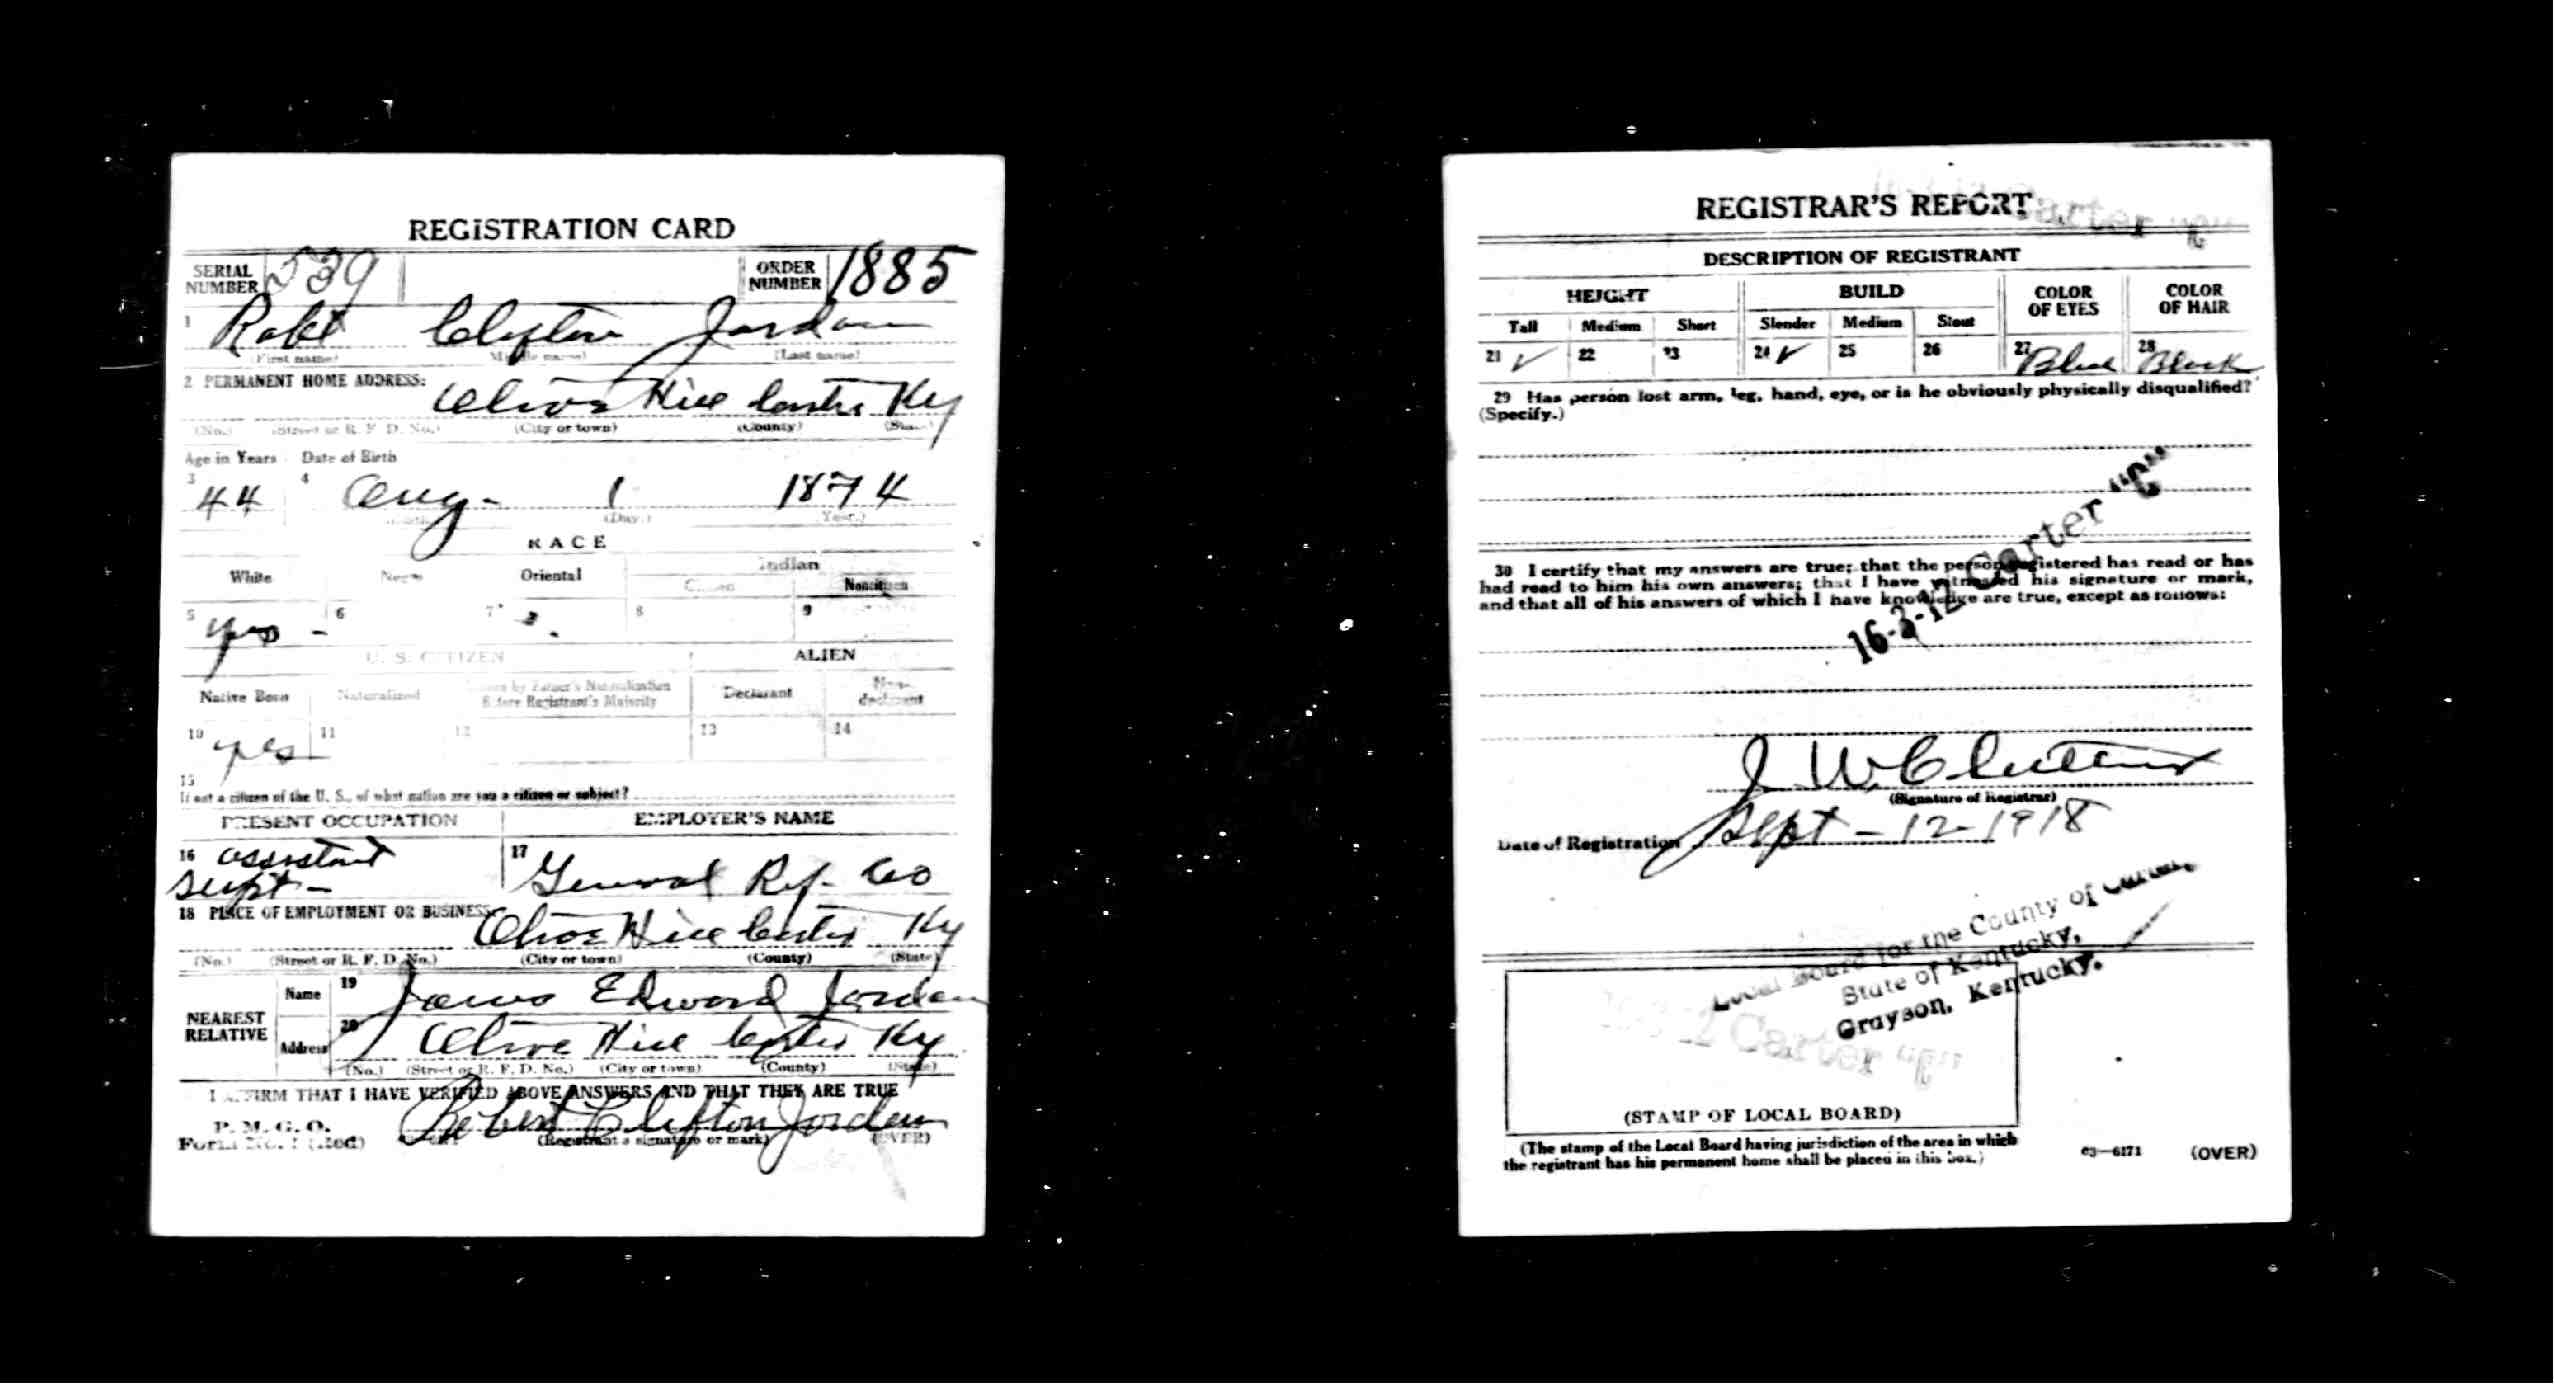 REGISTRATION CARD
SERIAL NUMBER 539 ORDER NUMBER 1885
1 Robt Clifton Jordan
(First name) (Middle name) (Last name)
2 PERMANENT HOME ADDRESS:
Olive Hill Carter Ky
(No.) (Street or R. F. D. No.) (City or town) (County) (State)
Age in Years Date of Birth
3 44 4 Aug- 1 1874
(Day.) (Year.)
RACE
White Negro Oriental Indian
Citizen Noncitizen
5 yes - 6 7 8 9
U. S. CITIZEN ALIEN
Native Born Naturalized Citizen by Father's Naturalization Before Registrant's Majority Declarant Non-declarant
10 yes 11 12 13 14
15
If not a citizen of the U. S., of what nation are you a citizen or subject?
PRESENT OCCUPATION EMPLOYER'S NAME
16 assistant 17 General Ref. Co
Supt-
18 PLACE OF EMPLOYMENT OR BUSINESS:
Olive Hill Carter Ky
(No.) (Street or R. F. D. No.) (City or town) (County) (State)
NEAREST RELATIVE
Name 19 James Edward Jordan
Address 20 Olive Hill Carter Ky
(No.) (Street or R. F. D. No.) (City or town) (County) (State)
I AFFIRM THAT I HAVE VERIFIED ABOVE ANSWERS AND THAT THEY ARE TRUE
P. M. G. O.
Form No. 1 (Red) Robert Clifton Jordan
(Registrant's signature or mark) (OVER)
REGISTRAR'S REPORT
DESCRIPTION OF REGISTRANT
HEIGHT BUILD COLOR OF EYES COLOR OF HAIR
Tall Medium Short Slender Medium Stout
21 ✓ 22 23 24 ✓ 25 26 27 Blue 28 Black
29 Has person lost arm, leg, hand, eye, or is he obviously physically disqualified?
(Specify.)
16-3-12 Carter "C"
30 I certify that my answers are true; that the person registered has read or has
had read to him his own answers; that I have witnessed his signature or mark,
and that all of his answers of which I have knowledge are true, except as follows:
J. W.
(Signature of Registrar)
Date of Registration Sept - 12 - 1918
Local Board for the County of Carter,
State of Kentucky,
Grayson, Kentucky.
(STAMP OF LOCAL BOARD)
(The stamp of the Local Board having jurisdiction of the area in which
the registrant has his permanent home shall be placed in this box.)
03—6171 (OVER)